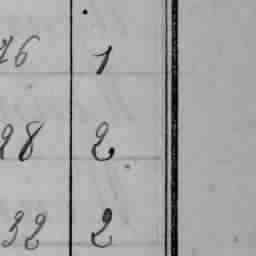 76 1
28 2
32 2